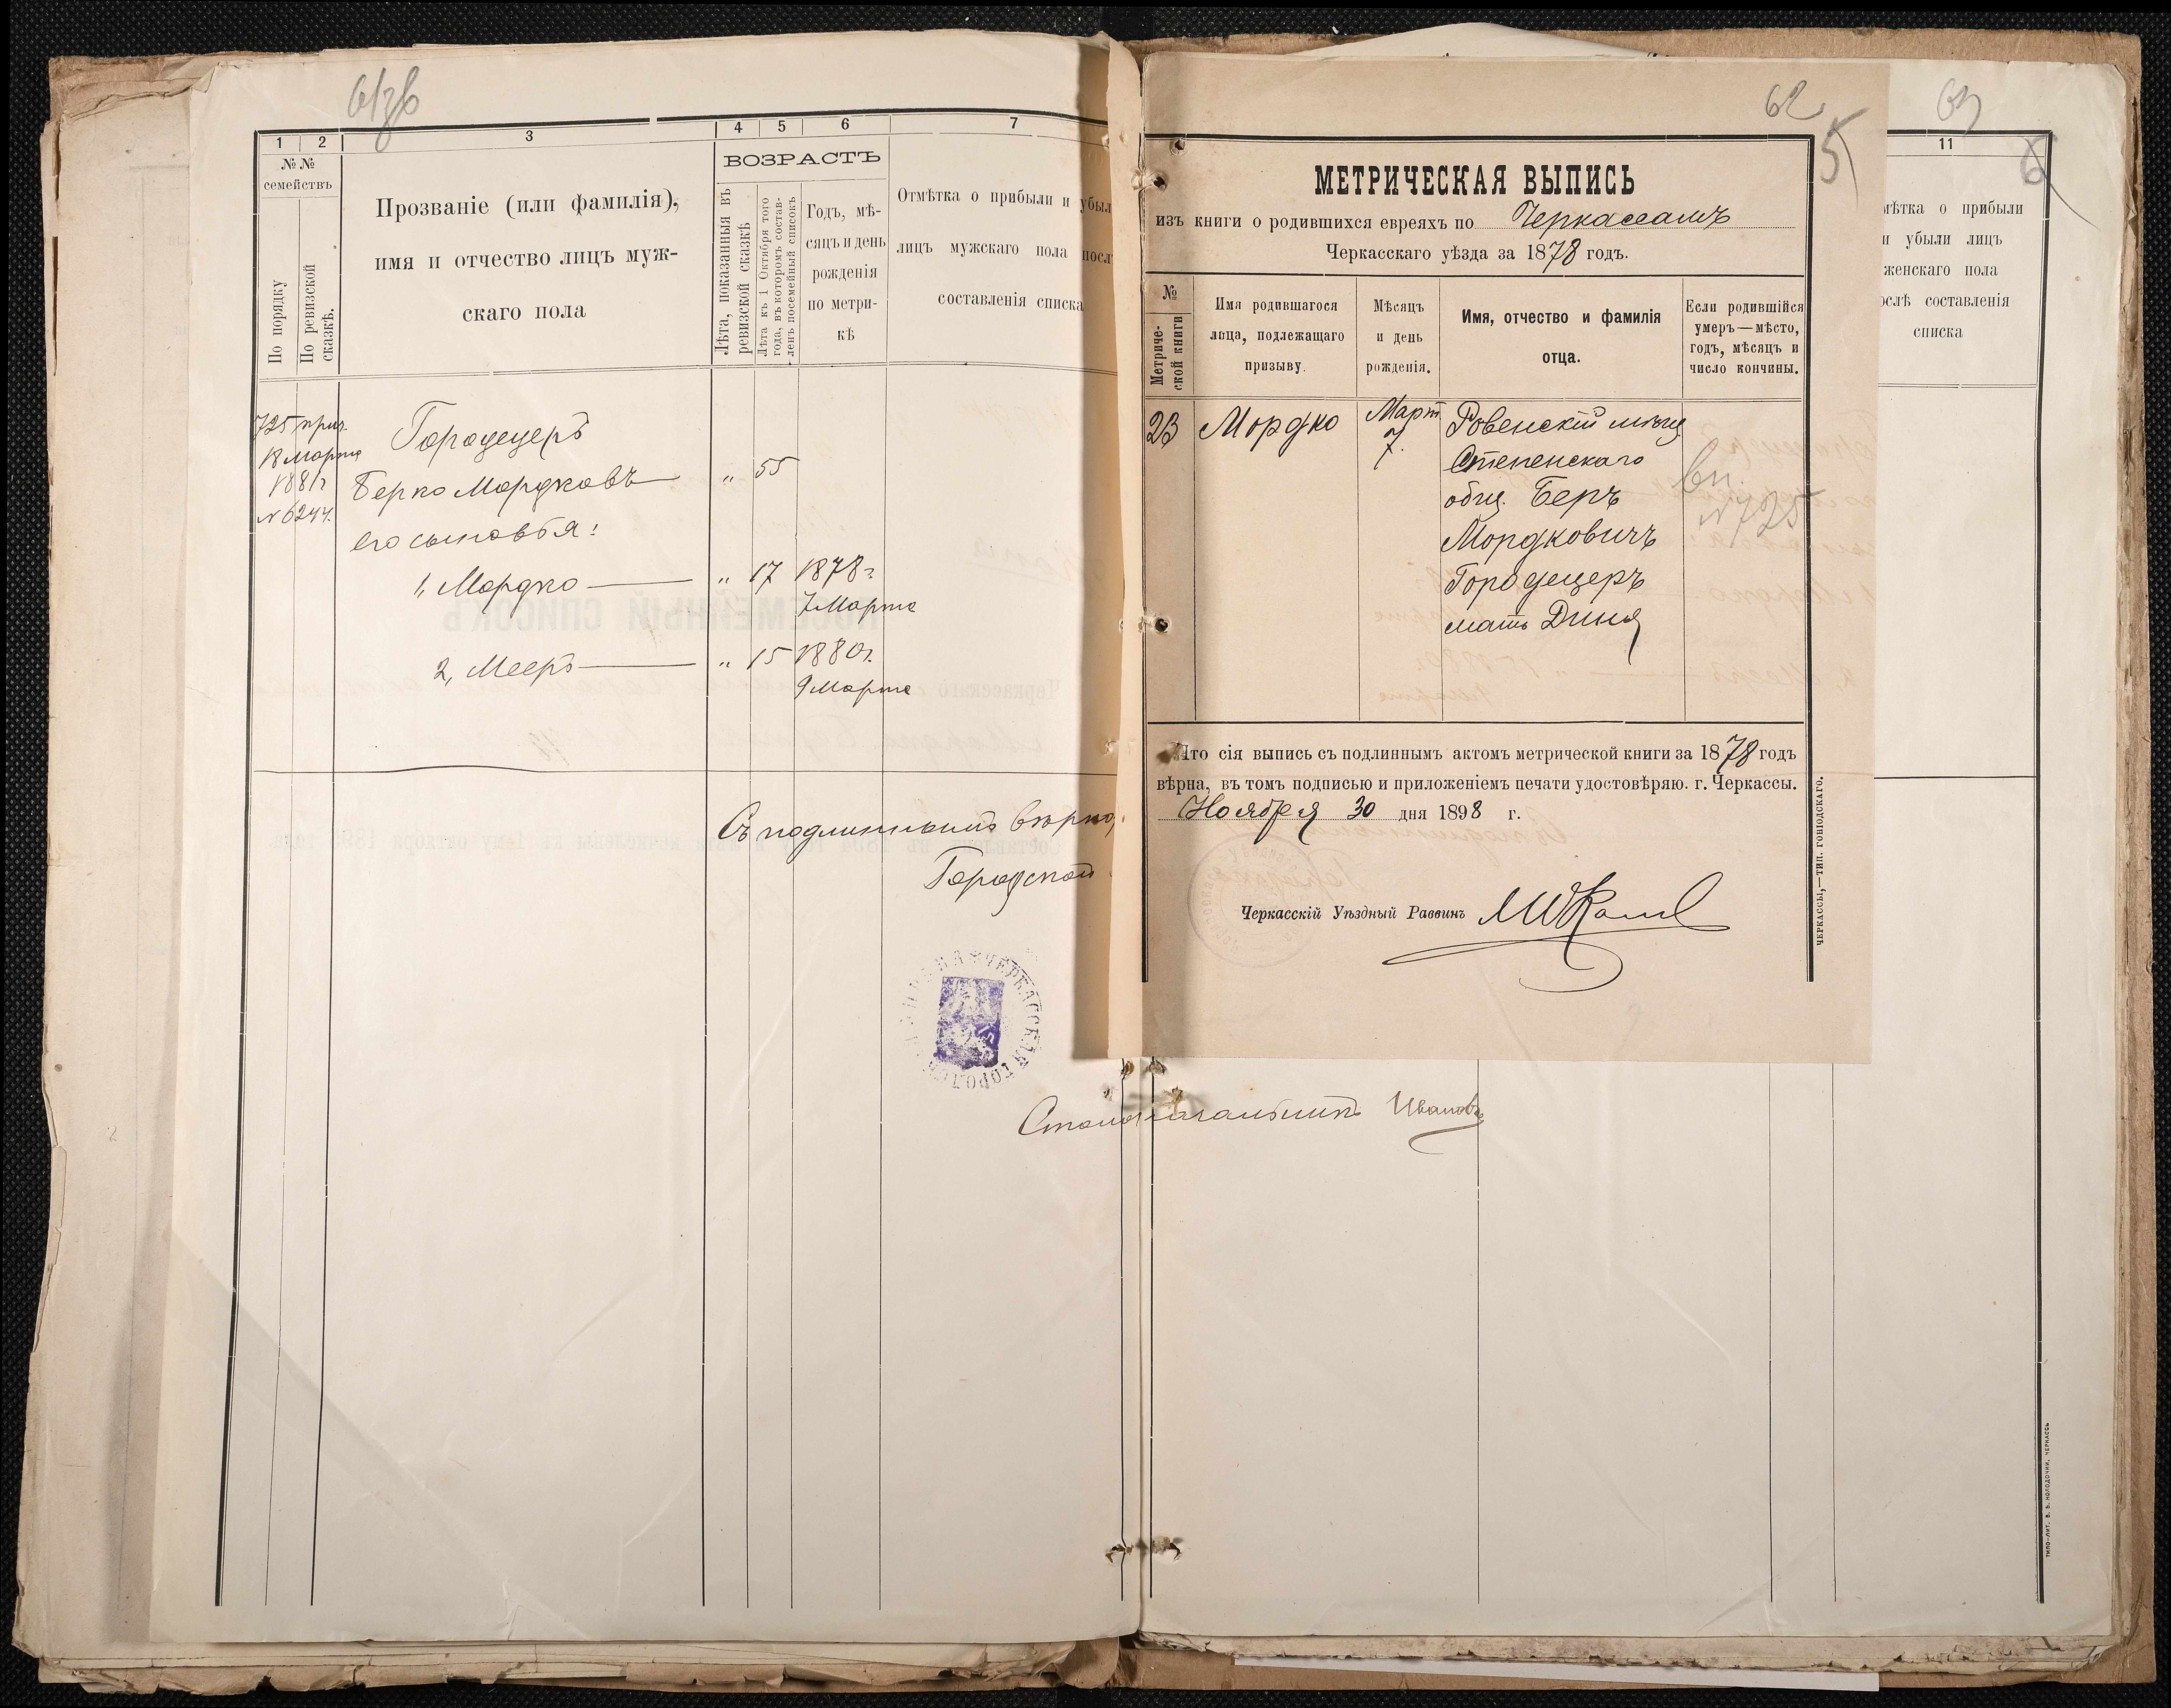 61зв
1 2 3 4 5 6 7
№ №
семействъ
По порядку
По ревизской сказкѣ.
Прозваніе (или фамилія),
имя и отчество лицъ муж-
скаго пола
ВОЗРАСТЪ
Лѣта, показанныя въ
ревизской сказкѣ
Лѣта къ 1 Октября того
года, въ которомъ состав-
ленъ посемейный списокъ
Годъ, мѣ-
сяцъ и день
рожденія
по метри-
кѣ
Отмѣтка о прибыли и убыл
лицъ мужскаго пола посл
составленія списка
725 прич.
18 марта
1881г
№ 6244.
Городецеръ
Берко Мордковъ „ 55
его сыновья:
1, Мордко „ 17 1878г.
7 Марта
2, Мееръ „ 15 1880г.
9 Марта
Съ подлиннымъ вѣрно,
Городской
ЧЕРКАССКАЯ ГОРОД
Столоначальникъ Ивановъ
62
5
МЕТРИЧЕСКАЯ ВЫПИСЬ
изъ книги о родившихся евреяхъ по Черкассамъ
Черкасскаго уѣзда за 1878 годъ.
№
Метриче-
ской книги
Имя родившагося
лица, подлежащаго
призыву.
Мѣсяцъ
и день
рожденія.
Имя, отчество и фамилія
отца.
Если родившійся
умеръ—мѣсто,
годъ, мѣсяцъ и
число кончины.
23 Мордко Март 7. Ровенскій мѣщ
Степенскаго
общ. Беръ
Мордковичъ
Городецеръ
мать Диня
вп.
№ 725
Что сія выпись съ подлиннымъ актомъ метрической книги за 1878 годъ
вѣрна, въ томъ подписью и приложеніемъ печати удостовѣряю. г. Черкассы.
Ноября 30 дня 1898 г.
Черкасскій Уѣздный Раввинъ
ЧЕРКАССЫ,—ТИП. ГОВІОДСКАГО.
63
6
11
мѣтка о прибыли
и убыли лицъ
женскаго пола
ослѣ составленія
списка
ТИПО-ЛИТ. В. В. КОЛОДОЧКИ, ЧЕРКАССЫ